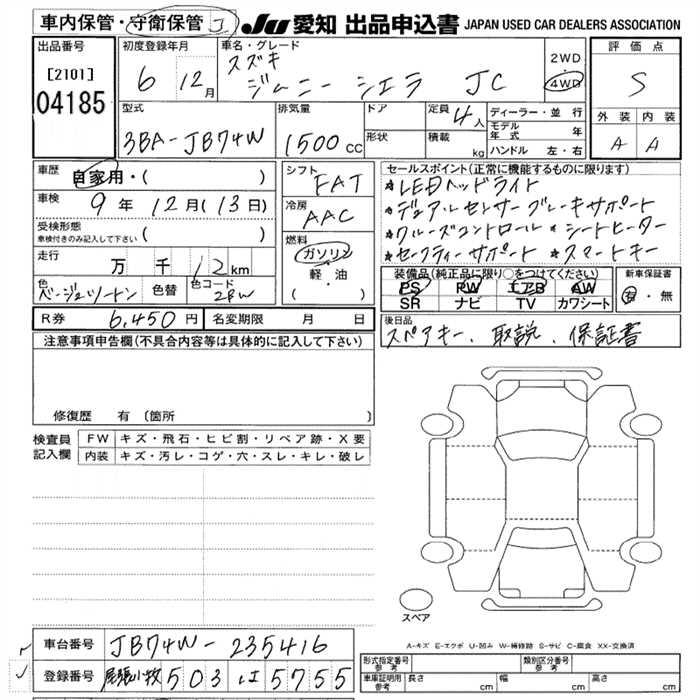 車内保管・守衛保管 J
JU 愛知 出品申込書 JAPAN USED CAR DEALERS ASSOCIATION
出品番号
[2101]
04185
初度登録年月
6 12月
車名・グレード
スズキ
ジムニー シエラ JC
2WD
4WD
評価点
S
外装 内装
A A
型式
3BA-JB74W
排気量
1500 CC
ドア
形状
定員 4人
積載 kg
ディーラー・並行
モデル年式 年
ハンドル 左・右
車歴
自家用・( )
車検
9年 12月(13日)
受検形態
車検付きのみ記入して下さい ( )
走行
万 千 12 km
色
ベージュツートン
色替
色コード
2BW
シフト
FAT
冷房
AAC
燃料
ガソリン
軽・油
( )
セールスポイント(正常に機能するものに限ります)
*LEDヘッドライト
*デュアルセンサーブレーキサポート
*クルーズコントロール *シートヒーター
*セーフティーサポート *スマートキー
装備品(純正品に限り○をつけてください)
PS PW エアB AW
SR ナビ TV カワシート
新車保証書
有・無
R券 6,450円
名変期限 月 日
後日品
スペアキー、取説、保証書
注意事項申告欄(不具合内容等は具体的に記入して下さい)
修復歴 有 〔箇所
検査員
記入欄
FW キズ・飛石・ヒビ割・リペア跡・X要
内装 キズ・汚レ・コゲ・穴・スレ・キレ・破レ
スペア
A-キズ E-エクボ U-凹み W-補修跡 S-サビ C-腐食 XX-交換済
車台番号 JB74W-235416
登録番号 尾張小牧 503 い 5755
形式指定番号
参考
類別区分番号
参考
車庫証明用
参考
長さ cm 幅 cm 高さ cm